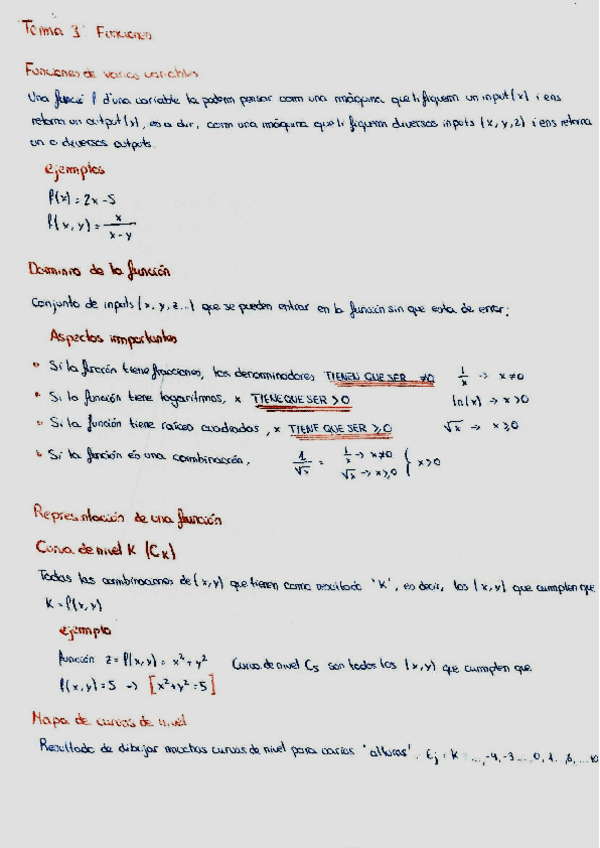 Tema 3: Funciones
Funciones de varias variables
Una funció f d'una variable la podem pensar com una màquina que li fiquem un input (x) i ens
retorna un output (s), es a dir, com una màquina que li fiquem diversos inputs (x, y, z) i ens retorna
un o diversos outputs.
ejemplos
f(x) = 2x - 5
f(x, y) = x / x-y
Dominio de la función
Conjunto de inputs (x, y, z...) que se pueden entrar en la función sin que esta de error:
Aspectos importantes
• Si la función tiene fracciones, los denominadores TIENEN QUE SER ≠0 1/x -> x≠0
• Si la función tiene logaritmos, x TIENE QUE SER >0 ln(x) -> x>0
• Si la función tiene raíces cuadradas, x TIENE QUE SER ≥0 √x -> x≥0
• Si la función es una combinación, 1/√x = 1/x -> x≠0 √x -> x≥0 { x>0
Representación de una función
Curva de nivel K (Ck)
Todas las combinaciones de (x, y) que tienen como resultado 'K', es decir, los (x, y) que cumplen que
K = f(x, y)
ejemplo
función z = f(x, y) = x² + y² Curva de nivel C5 son todos los (x, y) que cumplen que
f(x, y) = 5 -> [x² + y² = 5]
Mapa de curvas de nivel
Resultado de dibujar muchas curvas de nivel para varias 'alturas'. Ej: K = ..., -4, -3 ... 0, 1 ..